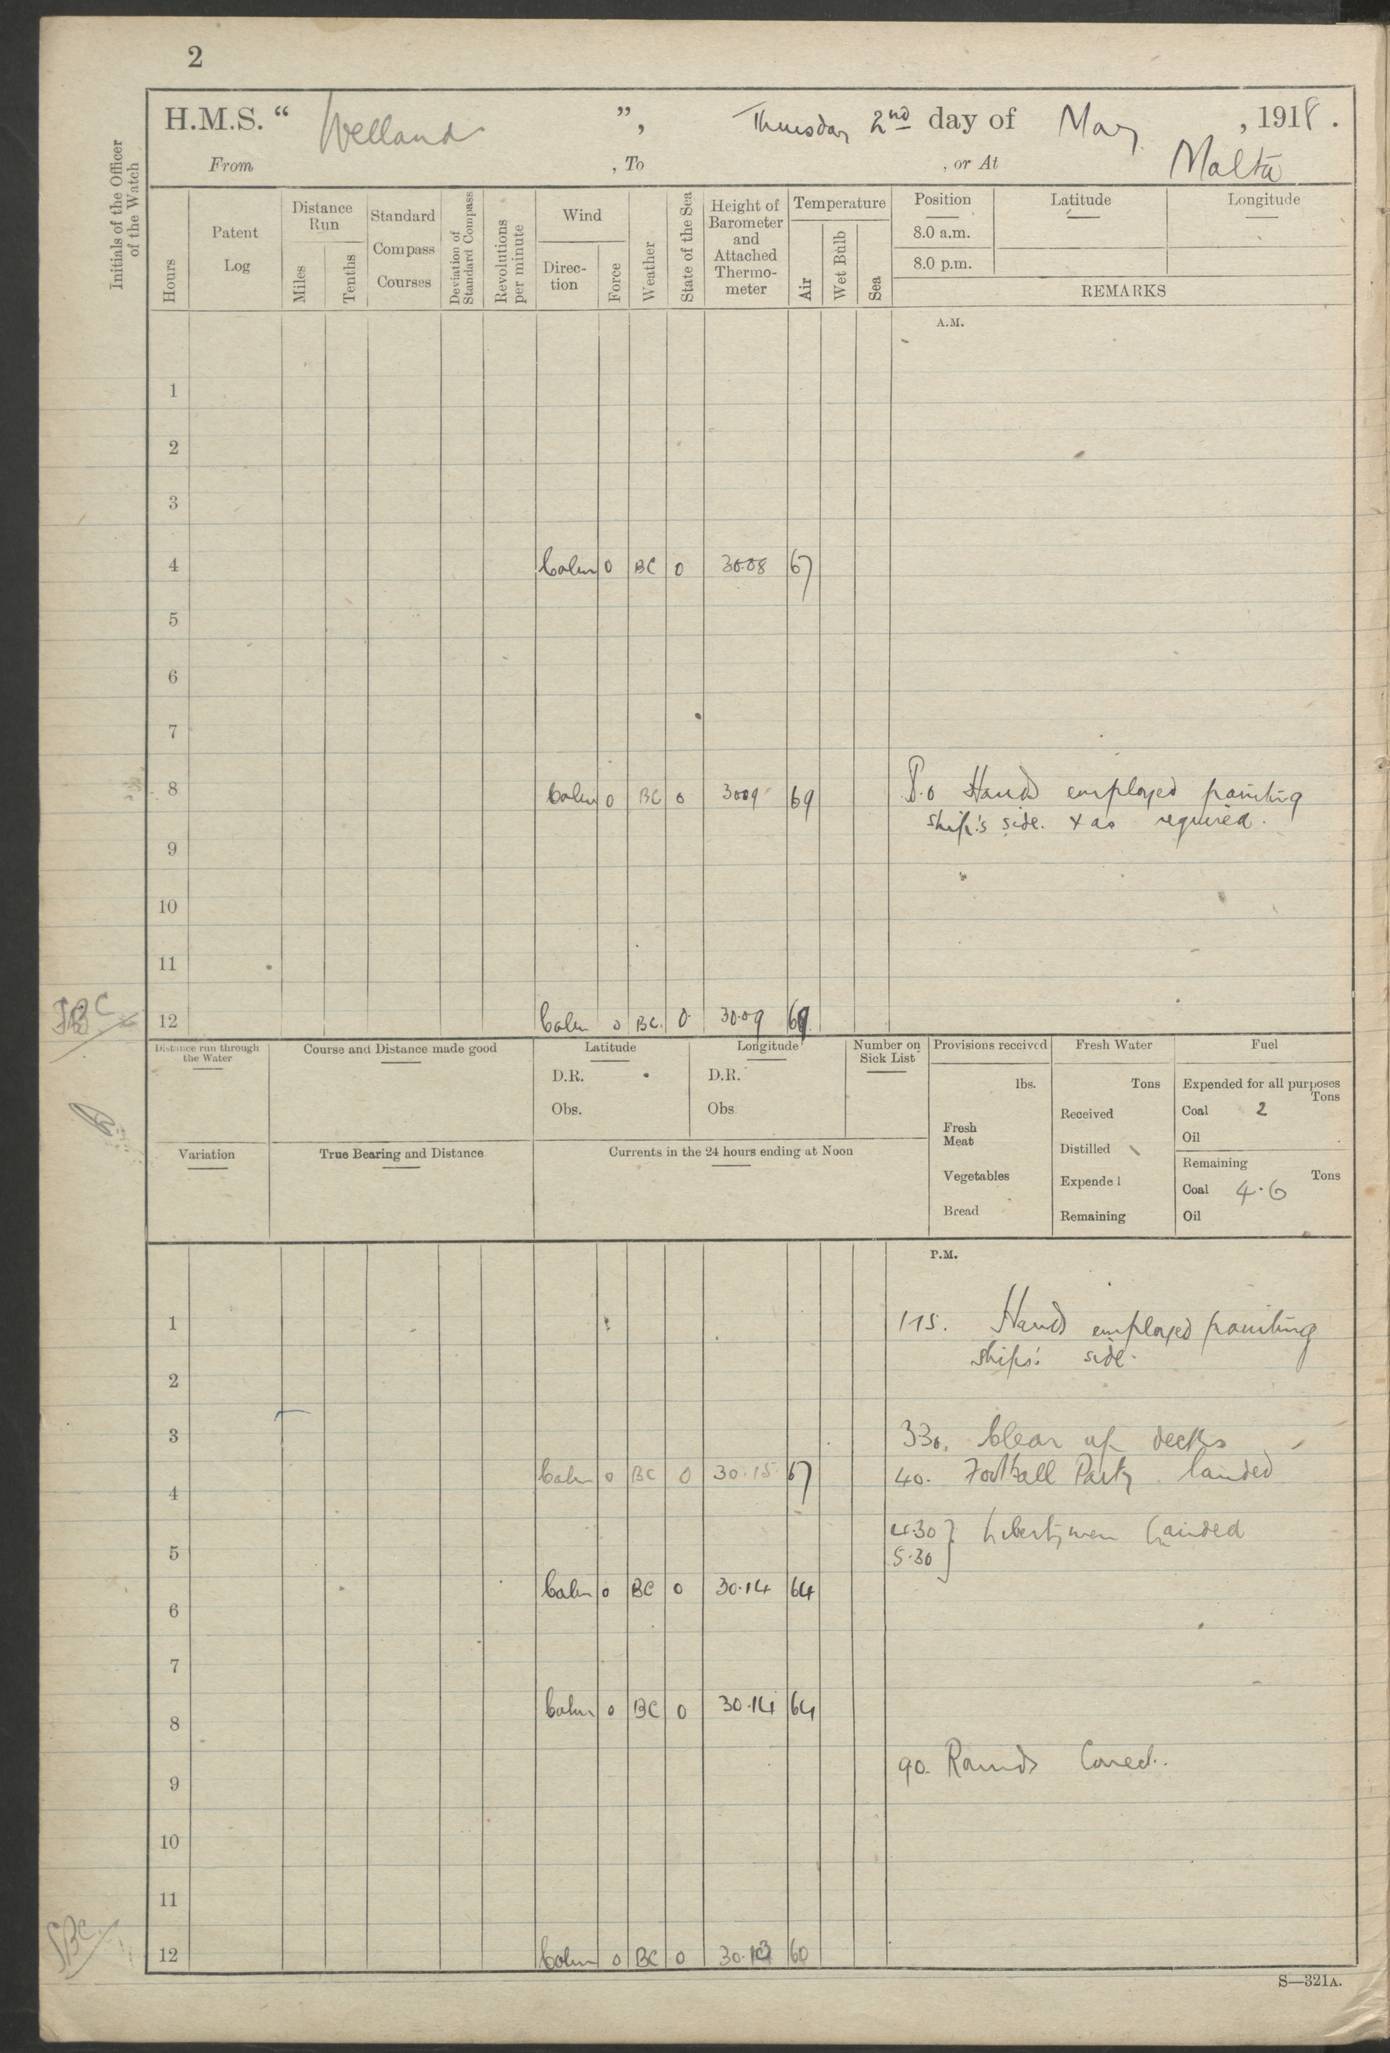 2
H.M.S. “ Welland ”, Thursday 2nd day of May , 1918.
From , To , or At Malta
Initials of the Officer of the Watch
Hours
Patent Log
Distance Run
Miles
Tenths
Standard Compass Courses
Deviation of Standard Compass
Revolutions per minute
Wind
Direc-tion
Force
Weather
State of the Sea
Height of Barometer and Attached Thermo-meter
Temperature
Air
Wet Bulb
Sea
Position Latitude Longitude
8.0 a.m.
8.0 p.m.
REMARKS
A.M.
1
2
3
4 Calm 0 BC 0 30.08 67
5
6
7
8 Calm 0 BC 0 30.09 69 8.0 Hands employed painting
ship's side. & as required.
9
10
11
12 Calm 0 BC. 0 30.09 69
Distance run through the Water
Course and Distance made good
Latitude
D.R.
Obs.
Longitude
D.R.
Obs
Number on Sick List
Provisions received
lbs.
Fresh Meat
Vegetables
Bread
Fresh Water
Tons
Received
Distilled
Expended
Remaining
Fuel
Expended for all purposes
Tons
Coal 2
Oil
Remaining
Tons
Coal 4.6
Oil
Variation
True Bearing and Distance
Currents in the 24 hours ending at Noon
P.M.
1 1 15. Hands employed painting
ships' side.
2
3 330. Clear up decks
Calm 0 BC 0 30.15 67 40. Football Party landed
4
4.30 } Libertymen landed
5 5.30
Calm 0 BC 0 30.14 64
6
7
Calm 0 BC 0 30.14 64
8
90. Rounds Correct.
9
10
11
12 Calm 0 BC 0 30.13 60
S—321A.